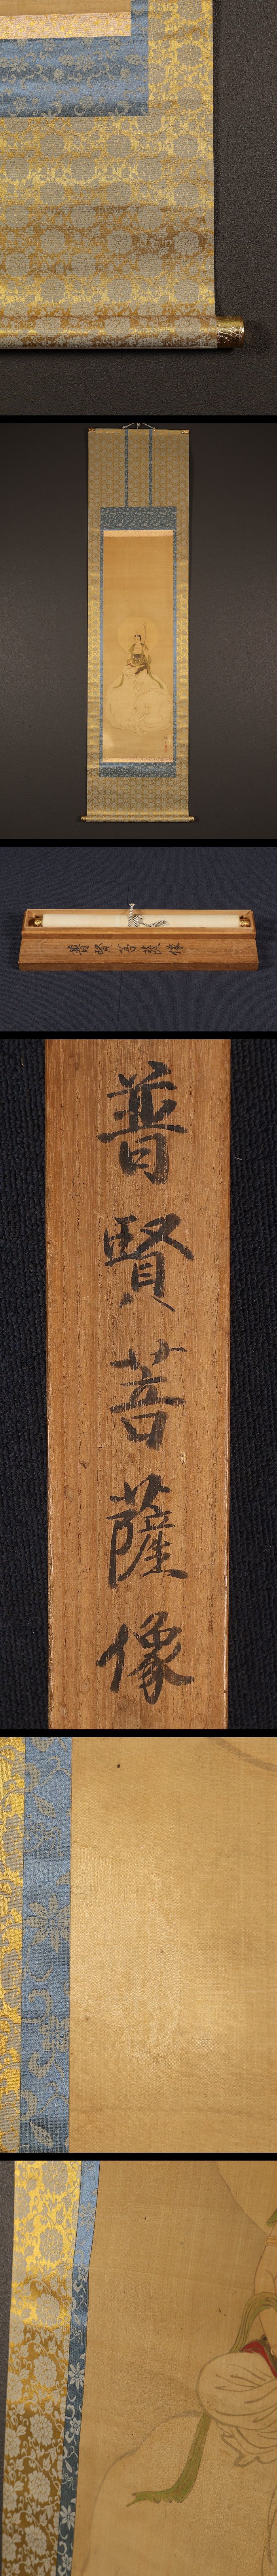 普賢菩薩像
普賢菩薩像